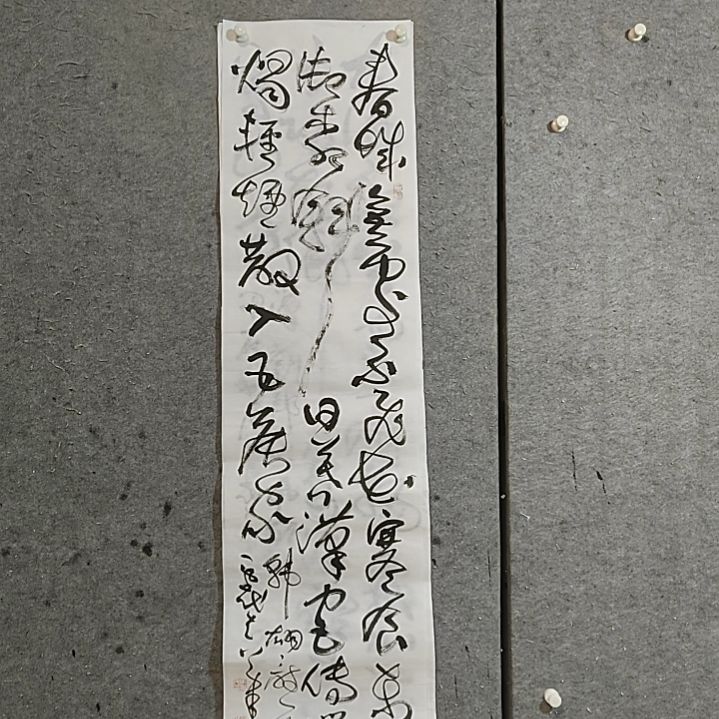 春城無處不飛花寒食東
御柳斜日暮漢宮傳
燭輕煙散入五侯家
韓翃詩